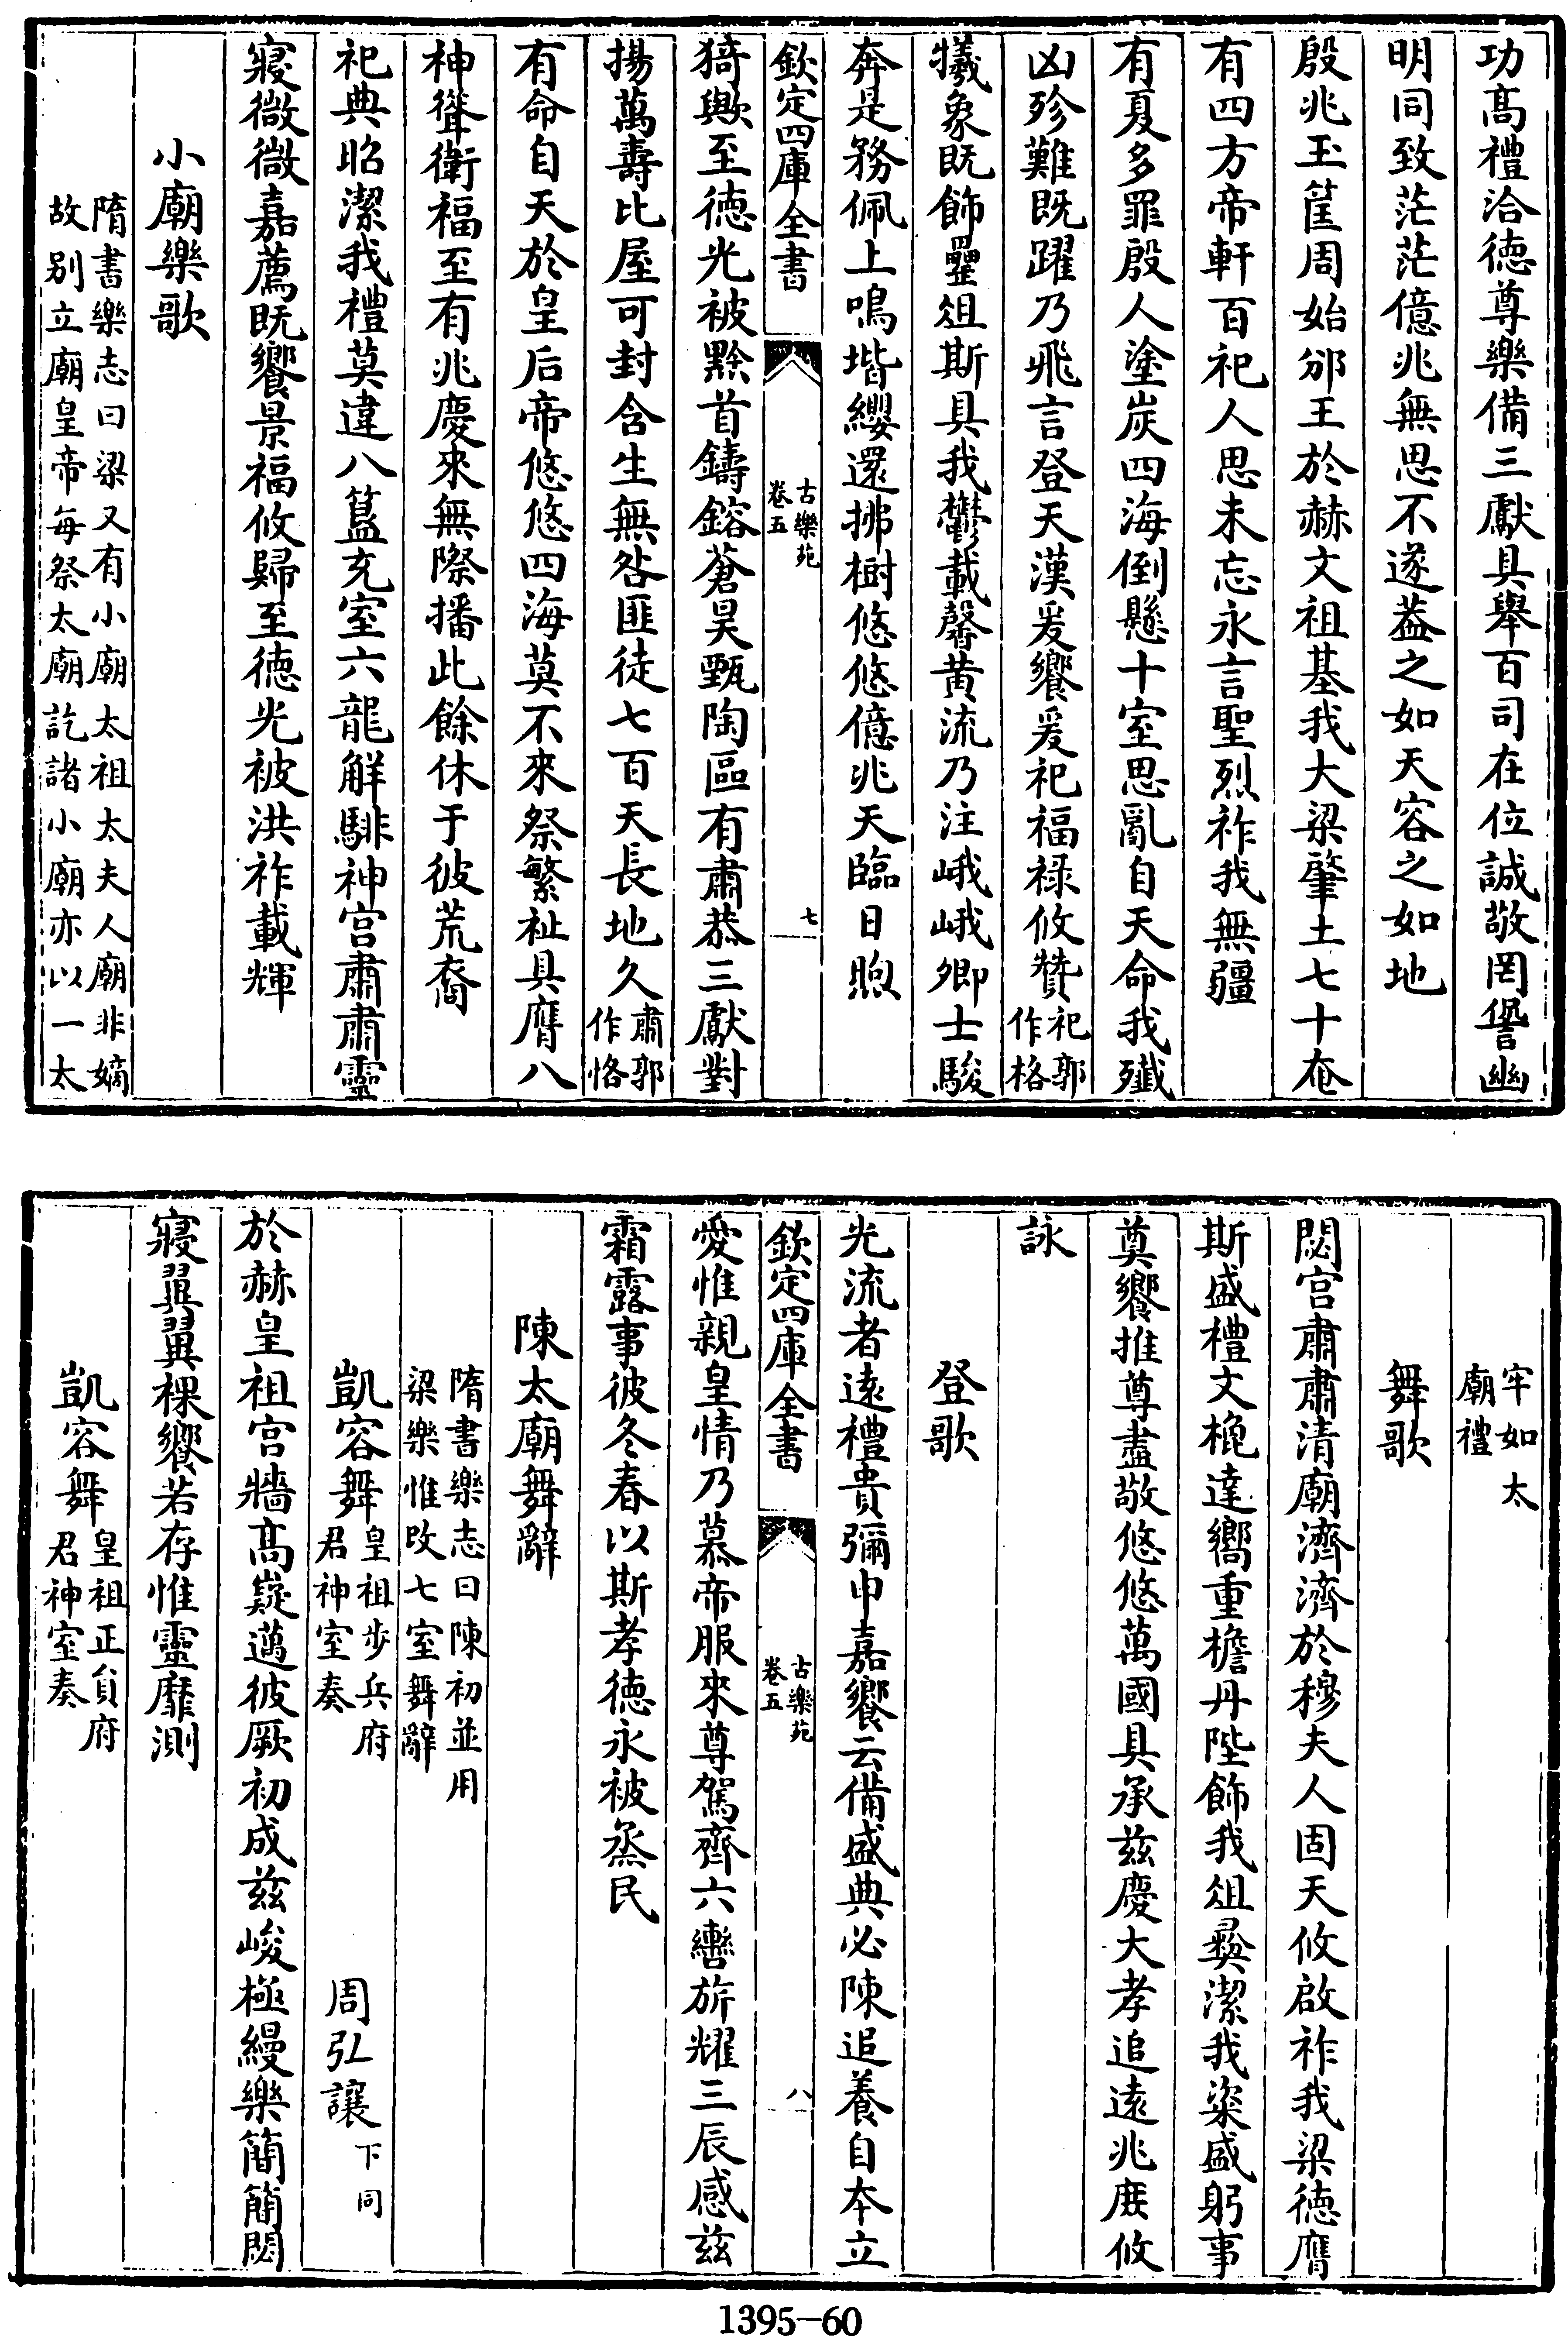 功髙禮洽徳尊樂備三獻具舉百司在位誠敬罔諐幽
明同致茫茫億兆無思不遂葢之如天容之如地
殷兆玉筐周始邠王於赫文祖基我大梁肇土七十奄
有四方帝軒百祀人思未忘永言聖烈祚我無疆
有夏多罪殷人塗炭四海倒懸十室思亂自天命我殲
凶殄難既躍乃飛言登天漢爰饗爰祀福禄攸贊祀郭作格
犠象既飾罍俎斯具我鬱載馨黄流乃注峨峨卿士駿
奔是務佩上鳴堦纓還拂樹悠悠億兆天臨日煦
欽定四庫全書 古樂苑 卷五 七
猗歟至徳光被黔首鑄鎔蒼昊甄陶區有肅恭三獻對
揚萬壽比屋可封含生無咎匪徒七百天長地久肅郭作恪
有命自天於皇后帝悠悠四海莫不來祭繁祉具膺八
神聳衛福至有兆慶來無際播此餘休于彼荒裔
祀典昭潔我禮莫違八簋充室六龍解騑神宫肅肅靈
寢微微嘉薦既饗景福攸歸至徳光被洪祚載輝
小廟樂歌
隋書樂志曰梁又有小廟太祖太夫人廟非嫡
故别立廟皇帝每祭太廟訖諸小廟亦以一太
牢如太
廟禮
舞歌
閟宫肅肅清廟濟濟於穆夫人固天攸啟祚我梁徳膺
斯盛禮文梍達嚮重檐丹陛飾我俎彛潔我粢盛躬事
奠饗推尊盡敬悠悠萬國具承兹慶大孝追逺兆庶攸
詠
登歌
光流者逺禮貴彌申嘉饗云備盛典必陳追養自本立
欽定四庫全書 古樂苑 卷五 八
愛惟親皇情乃慕帝服來尊駕齊六轡旂耀三辰感兹
霜露事彼冬春以斯孝徳永被烝民
陳太廟舞辭
隋書樂志曰陳初並用
梁樂惟改七室舞辭
凱容舞皇祖步兵府君神室奏 周弘讓下同
於赫皇祖宫牆髙嶷邁彼厥初成兹峻極縵樂簡簡閟
寢翼翼祼饗若存惟靈靡測
凱容舞皇祖正員府君神室奏
1395-60